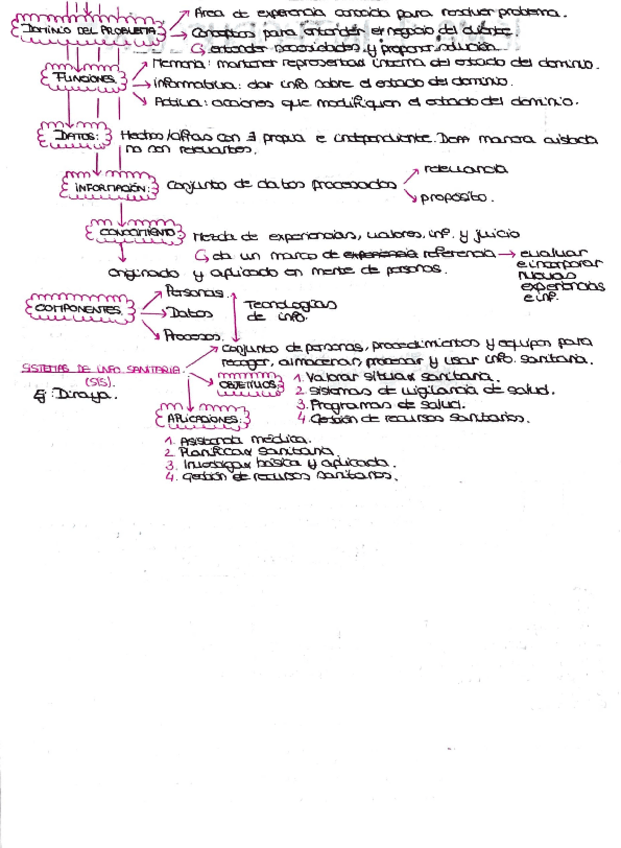 Área de experiencia conocida para resolver problema.
DOMINIO DEL PROBLEMA
Conceptos para entender el negocio del cliente
entender necesidades y proponer solución
FUNCIONES
Memoria: mantener representax interna del estado del dominio.
Informativa: dar info sobre el estado del dominio.
Activa: acciones que modifiquen el estado del dominio.
DATOS: Hechos/cifras con propia e independiente. De manera aislada
no son relevantes.
INFORMACIÓN: Conjunto de datos procesados
relevancia
propósito.
CONOCIMIENTO Mezcla de experiencias, valores, inf. y juicio
da un marco de experiencia referencia → evaluar
e incorporar
nuevas
experiencias
e inf.
originado y aplicado en mente de personas.
COMPONENTES
Personas.
Datos
Procesos.
Tecnologías
de info.
SISTEMAS DE INFO SANITARIA.
(SIS).
Ej: Diraya.
Conjunto de personas, procedimientos y equipos para
recoger, almacenar, procesar y usar info. sanitaria.
OBJETIVOS:
1. Valorar situax sanitaria.
2. Sistemas de vigilancia de salud.
3. Programas de salud.
4. Gestión de recursos sanitarios.
APLICACIONES:
1. Asistencia médica.
2. Planificax sanitaria.
3. Investigax básica y aplicada.
4. Gestión de recursos sanitarios.